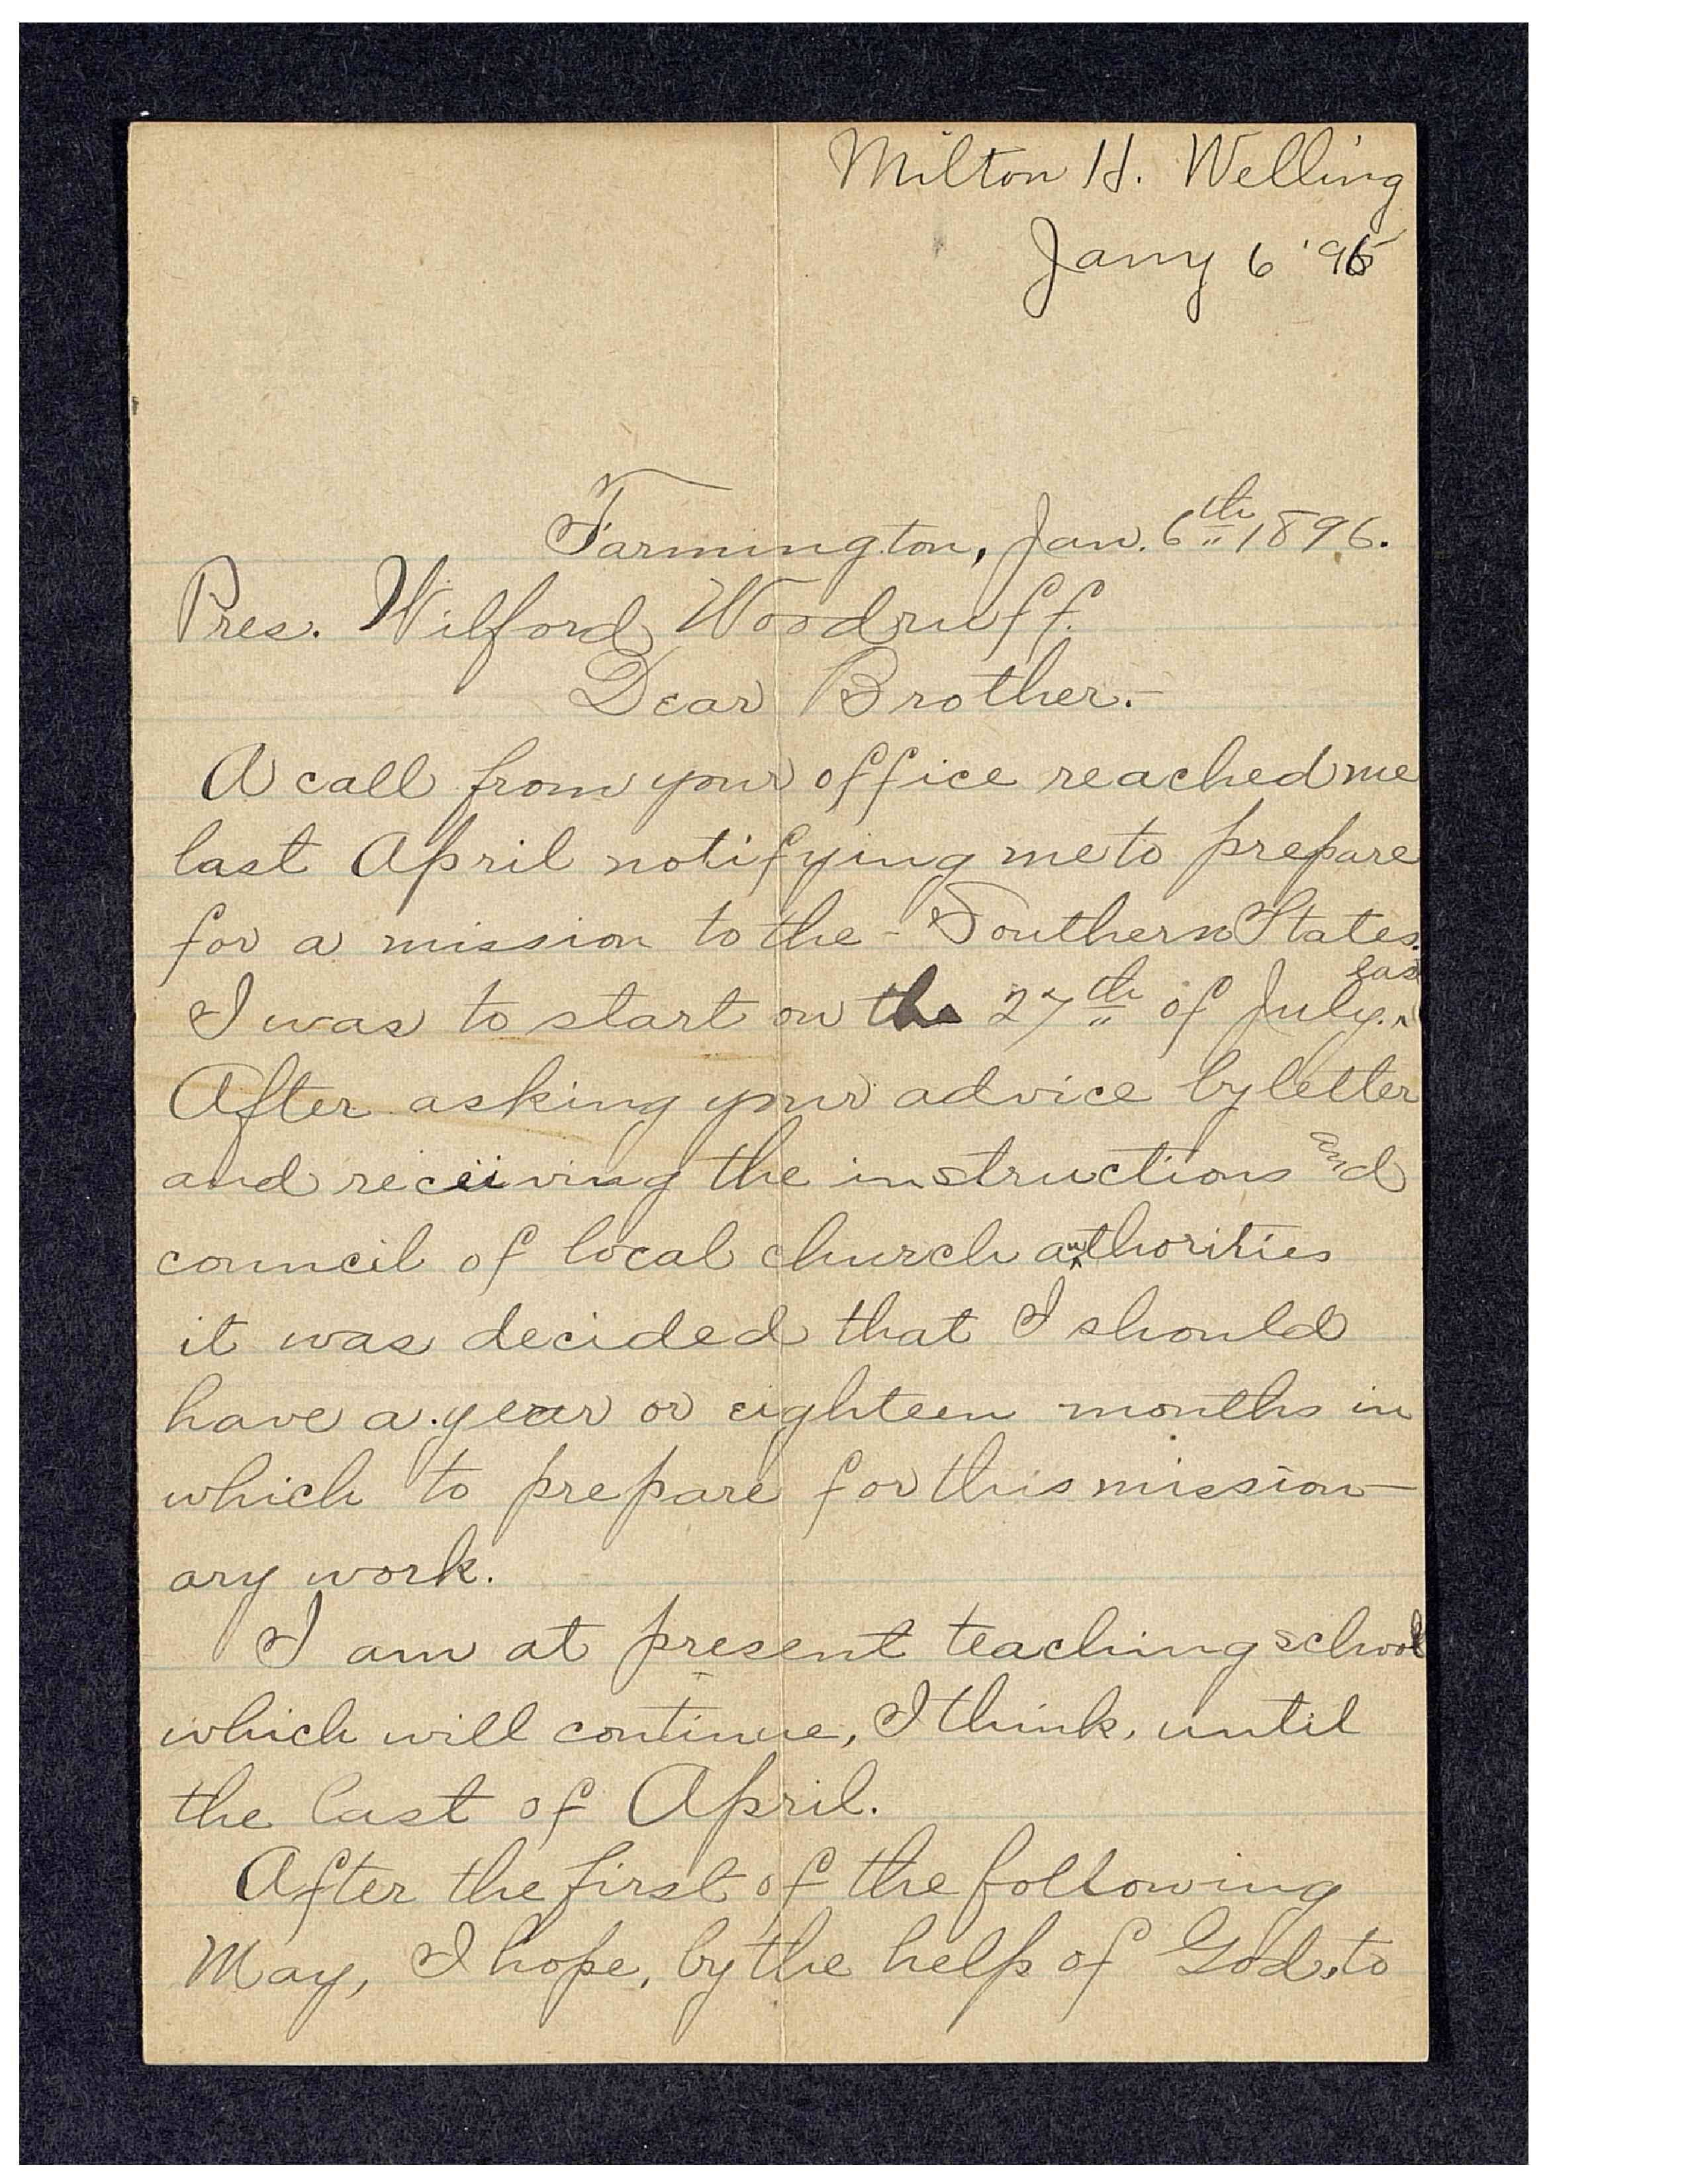 Milton H. Welling
Jany 6 '96
Farmington, Jan. 6th 1896.
Pres. Wilford Woodruff.
Dear Brother:-
A call from your office reached me
last April notifying me to prepare
for a mission to the Southern States.
last
I was to start on the 27th of July.^
After asking your advice by letter
and receiving the instructions and
council of local church authorities
it was decided that I should
have a year or eighteen months in
which to prepare for this mission-
ary work.
I am at present teaching school
which will continue, I think, until
the last of April.
After the first of the following
May, I hope, by the help of God, to